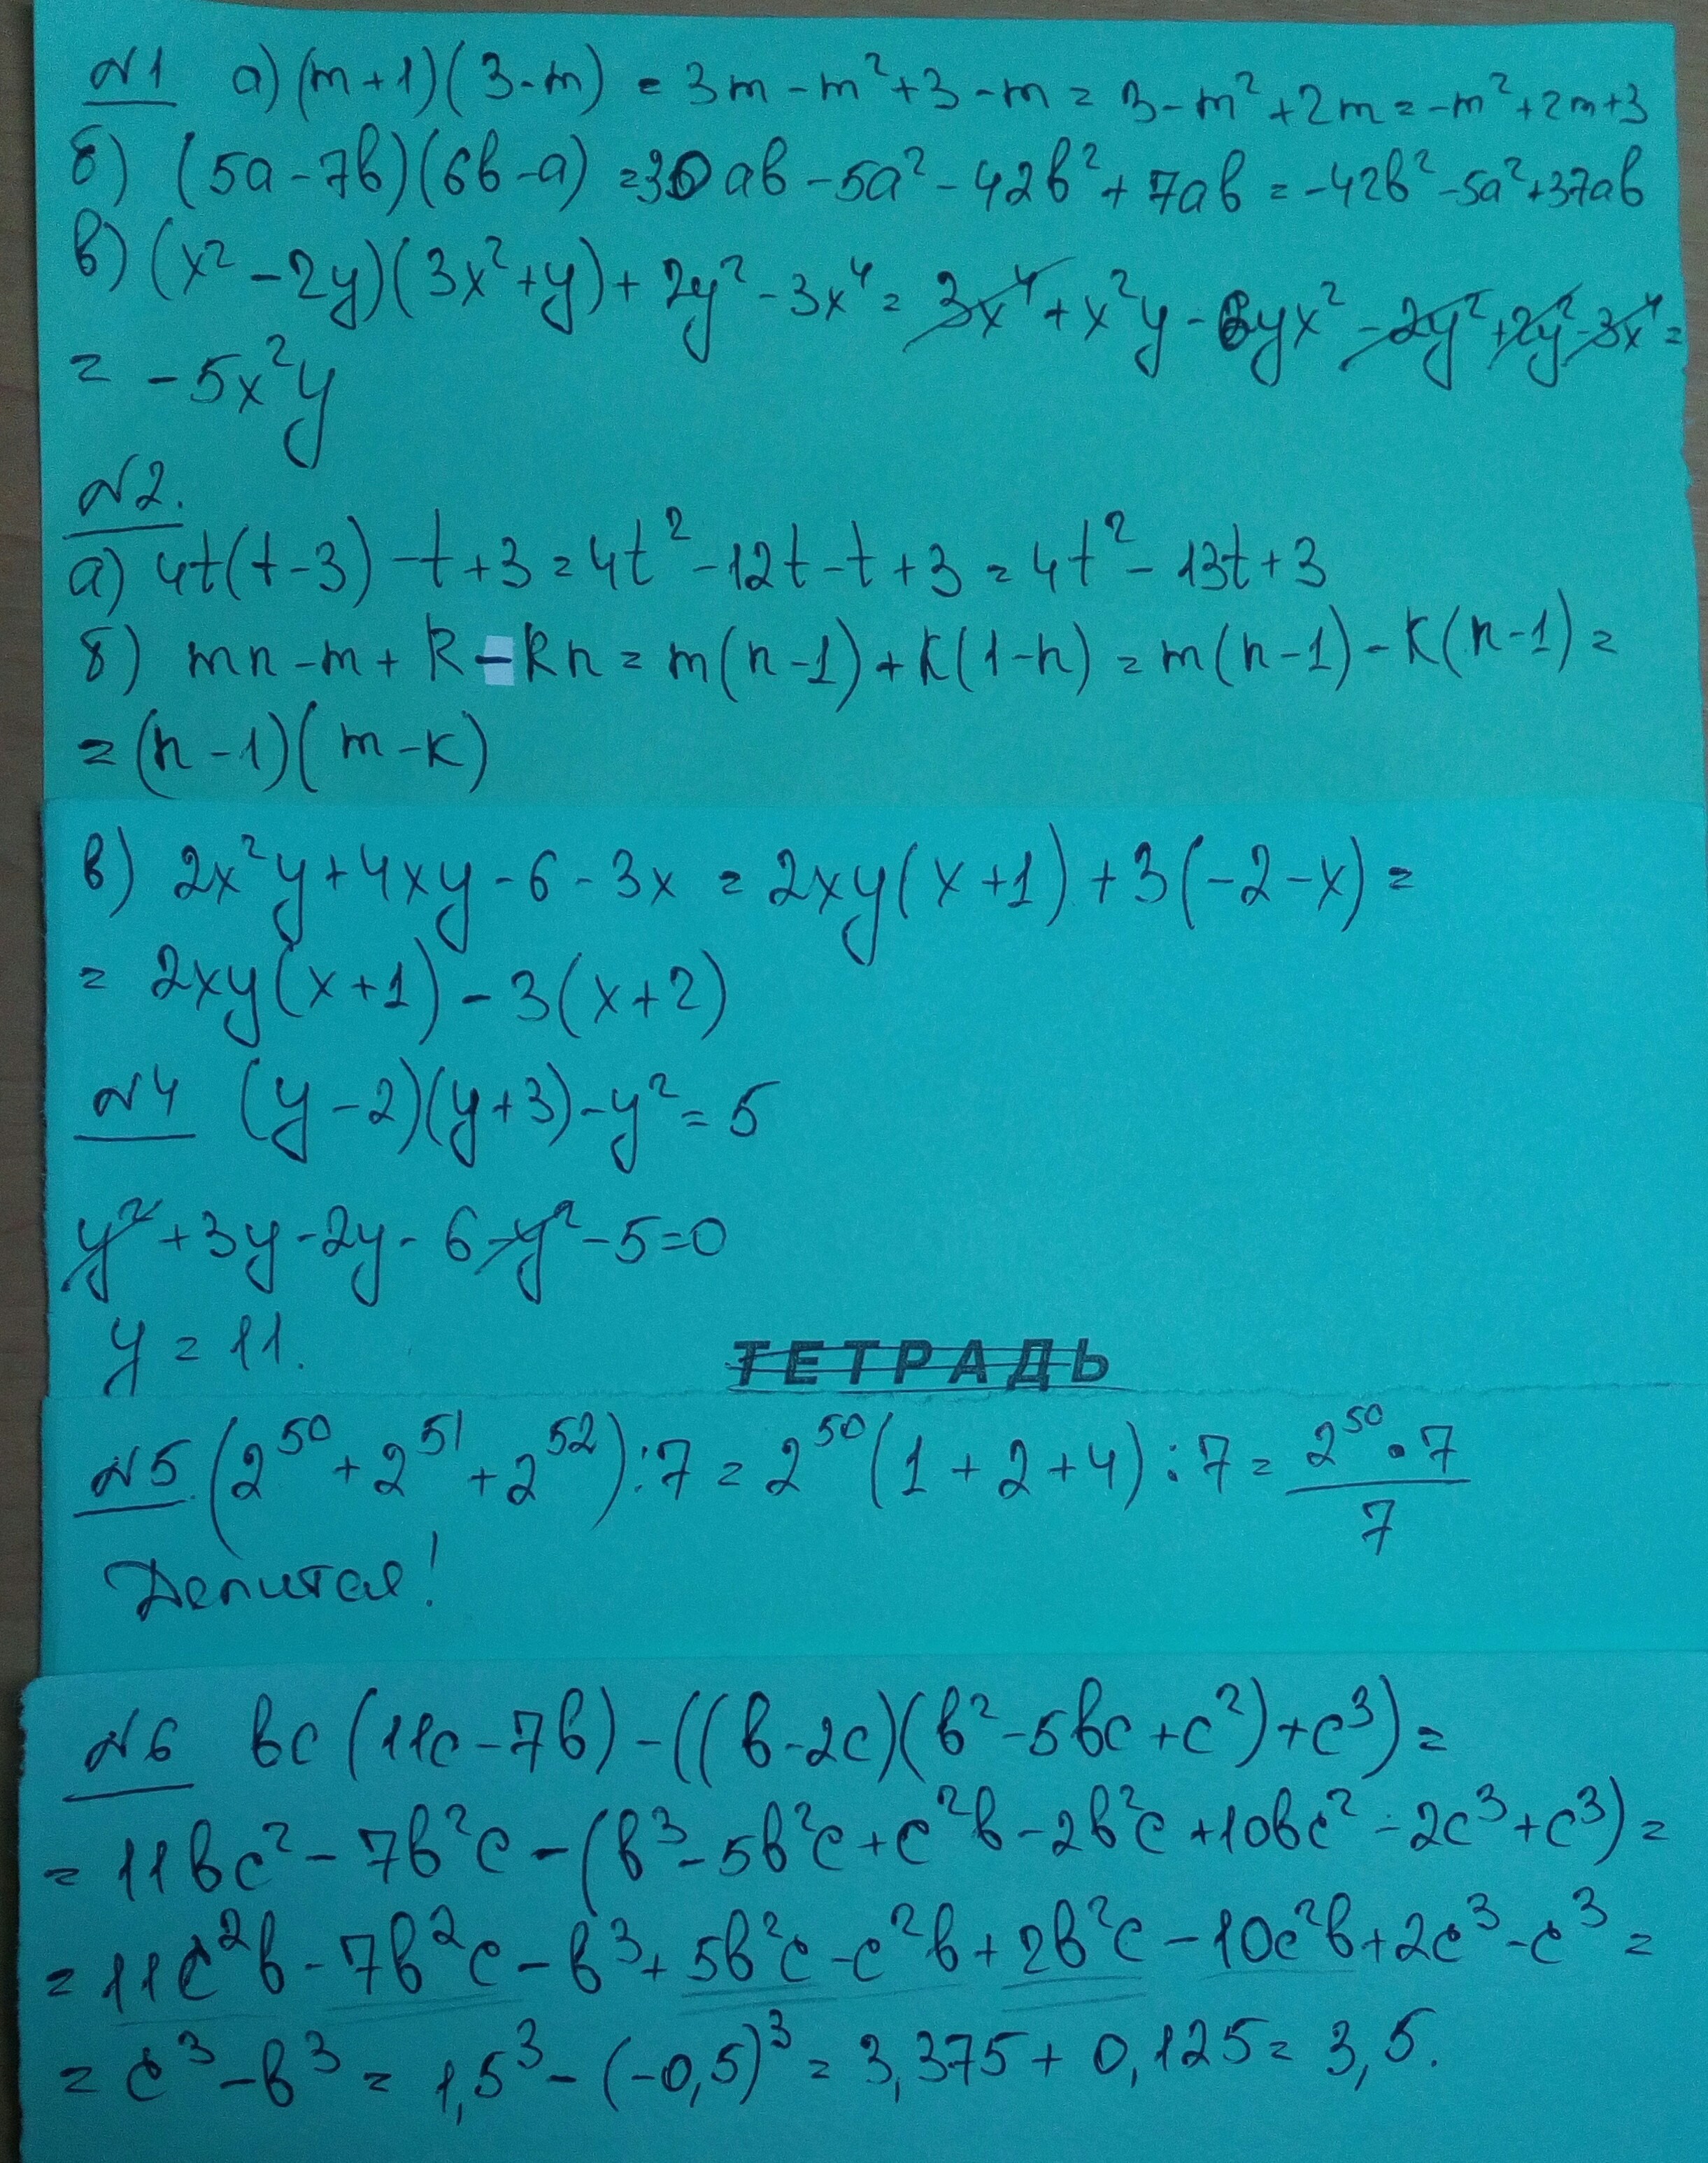 №1 а) (m+1)(3-m) = 3m - m² + 3 - m = 3 - m² + 2m = -m² + 2m + 3
б) (5a - 7b)(6b - a) = 30ab - 5a² - 42b² + 7ab = -42b² - 5a² + 37ab
в) (x² - 2y)(3x² + y) + 2y² - 3x⁴ = 3x⁴ + x²y - 6yx² - 2y² + 2y² - 3x⁴ =
= -5x²y
№2.
а) 4t(t-3) - t + 3 = 4t² - 12t - t + 3 = 4t² - 13t + 3
б) mn - m + k - kn = m(n-1) + k(1-n) = m(n-1) - k(n-1) =
= (n-1)(m-k)
в) 2x²y + 4xy - 6 - 3x = 2xy(x+1) + 3(-2-x) =
= 2xy(x+1) - 3(x+2)
№4 (y-2)(y+3) - y² = 5
y² + 3y - 2y - 6 - y² - 5 = 0
y = 11.
ТЕТРАДЬ
№5. (2⁵⁰ + 2⁵¹ + 2⁵²) : 7 = 2⁵⁰(1 + 2 + 4) : 7 = 2⁵⁰ · 7 / 7
Делится!
№6 bc(11c - 7b) - ((b-2c)(b² - 5bc + c²) + c³) =
= 11bc² - 7b²c - (b³ - 5b²c + c²b - 2b²c + 10bc² - 2c³ + c³) =
= 11c²b - 7b²c - b³ + 5b²c - c²b + 2b²c - 10c²b + 2c³ - c³ =
= c³ - b³ = 1,5³ - (-0,5)³ = 3,375 + 0,125 = 3,5.